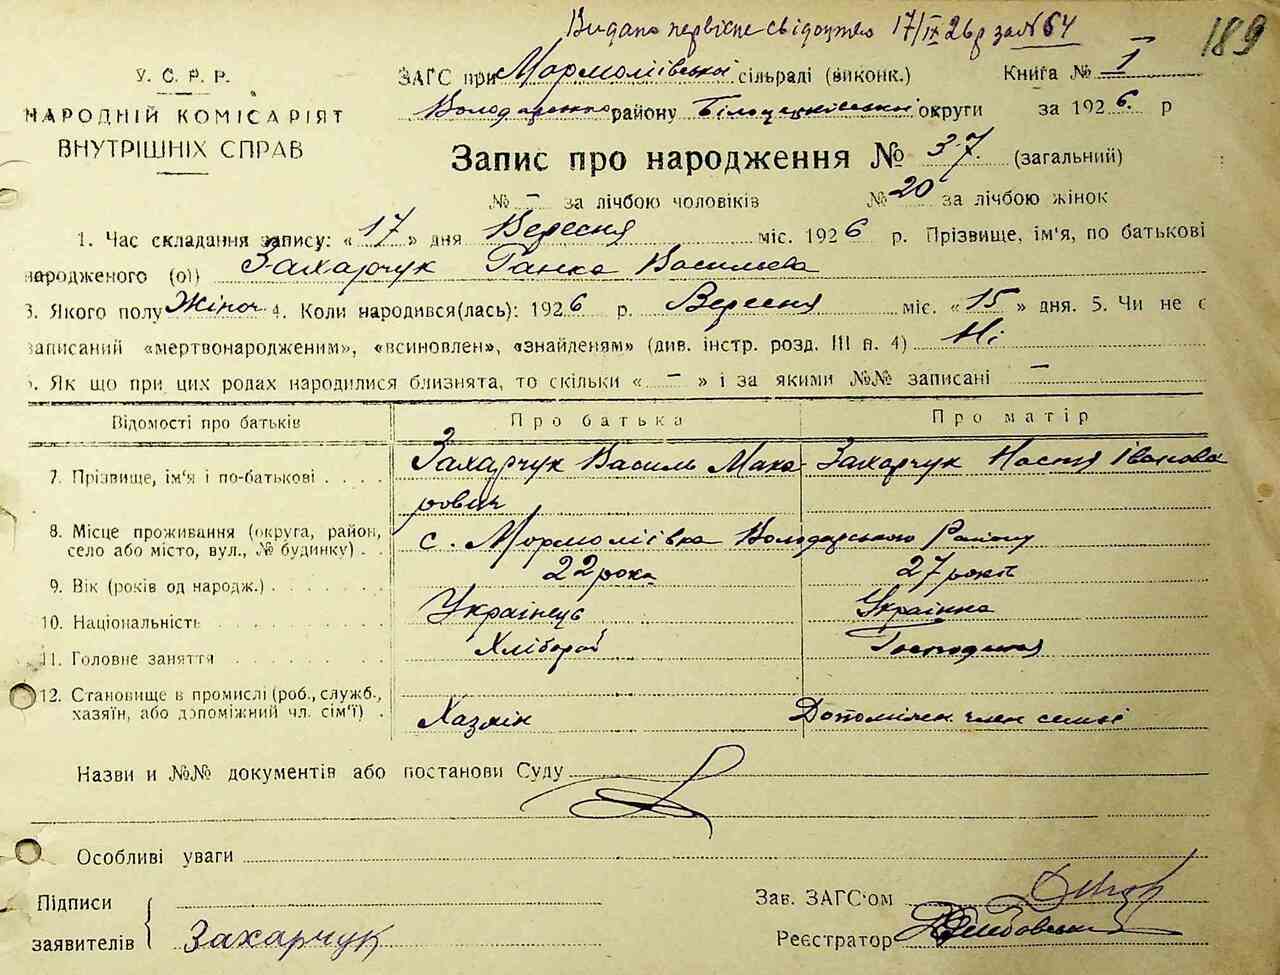 Видано первісне свідоцтво 17/IX 26 р за № 64
189
У. С. Р. Р.
НАРОДНІЙ КОМІСАРІЯТ
ВНУТРІШНІХ СПРАВ
ЗАГС при Мармоліївської сільраді (виконк.) Книга № 1
району округи за 1926. р
Запис про народження № 37. (загальний)
№ – за лічбою чоловіків № 20 за лічбою жінок
1. Час складання запису: « 17 » дня Вересня міс. 1926 р. Прізвище, ім'я, по батькові
народженого (ої) Захарчук Ганка Василева
3. Якого полу Жіноч 4. Коли народився(лась): 1926 р. Вересня міс. « 15 » дня. 5. Чи не є
записаний «мертвонародженим», «всиновлен», «знайденям» (див. інстр. розд. III п. 4) Ні
6. Як що при цих родах народилися близнята, то скільки « – » і за якими №№ записані –
Відомості про батьків Про батька Про матір
7. Прізвище, ім'я і по-батькові Захарчук Василь Мака- Захарчук Настя Іванова
рович
8. Місце проживання (округа, район,
село або місто, вул., № будинку) с. Мармоліївка Володарського Району
9. Вік (років од народж.) 22 рока 27 років
10. Національність Українець Українка
11. Головне заняття Хлібороб Господиня
12. Становище в промислі (роб., служб.,
хазяїн, або допоміжний чл. сім'ї) Хазяїн Допоміжн. член семьі
Назви и №№ документів або постанови Суду
Особливі уваги
Підписи
Зав. ЗАГС'ом
заявителів Захарчук
Реєстратор